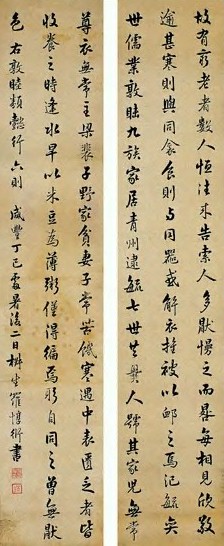 故有窮老者數人恒往來告索人多厭慢之而晷每相見欣敬
逾甚寒則與同衾食則与同器或解衣推被以郵之焉氾毓奕
世儒業敦睦九族家居青州逮毓七世共爨人號其家兒無常
父衣無常主裴子野家貧妻子常苦饑寒遇中表匱乏者皆
收養之時逢水旱以米豆為薄粥僅得徧焉躬自同之曾無厭
色 右敦睦類懿行六則 咸豐丁巳處暑後二日 生羅惇衍書